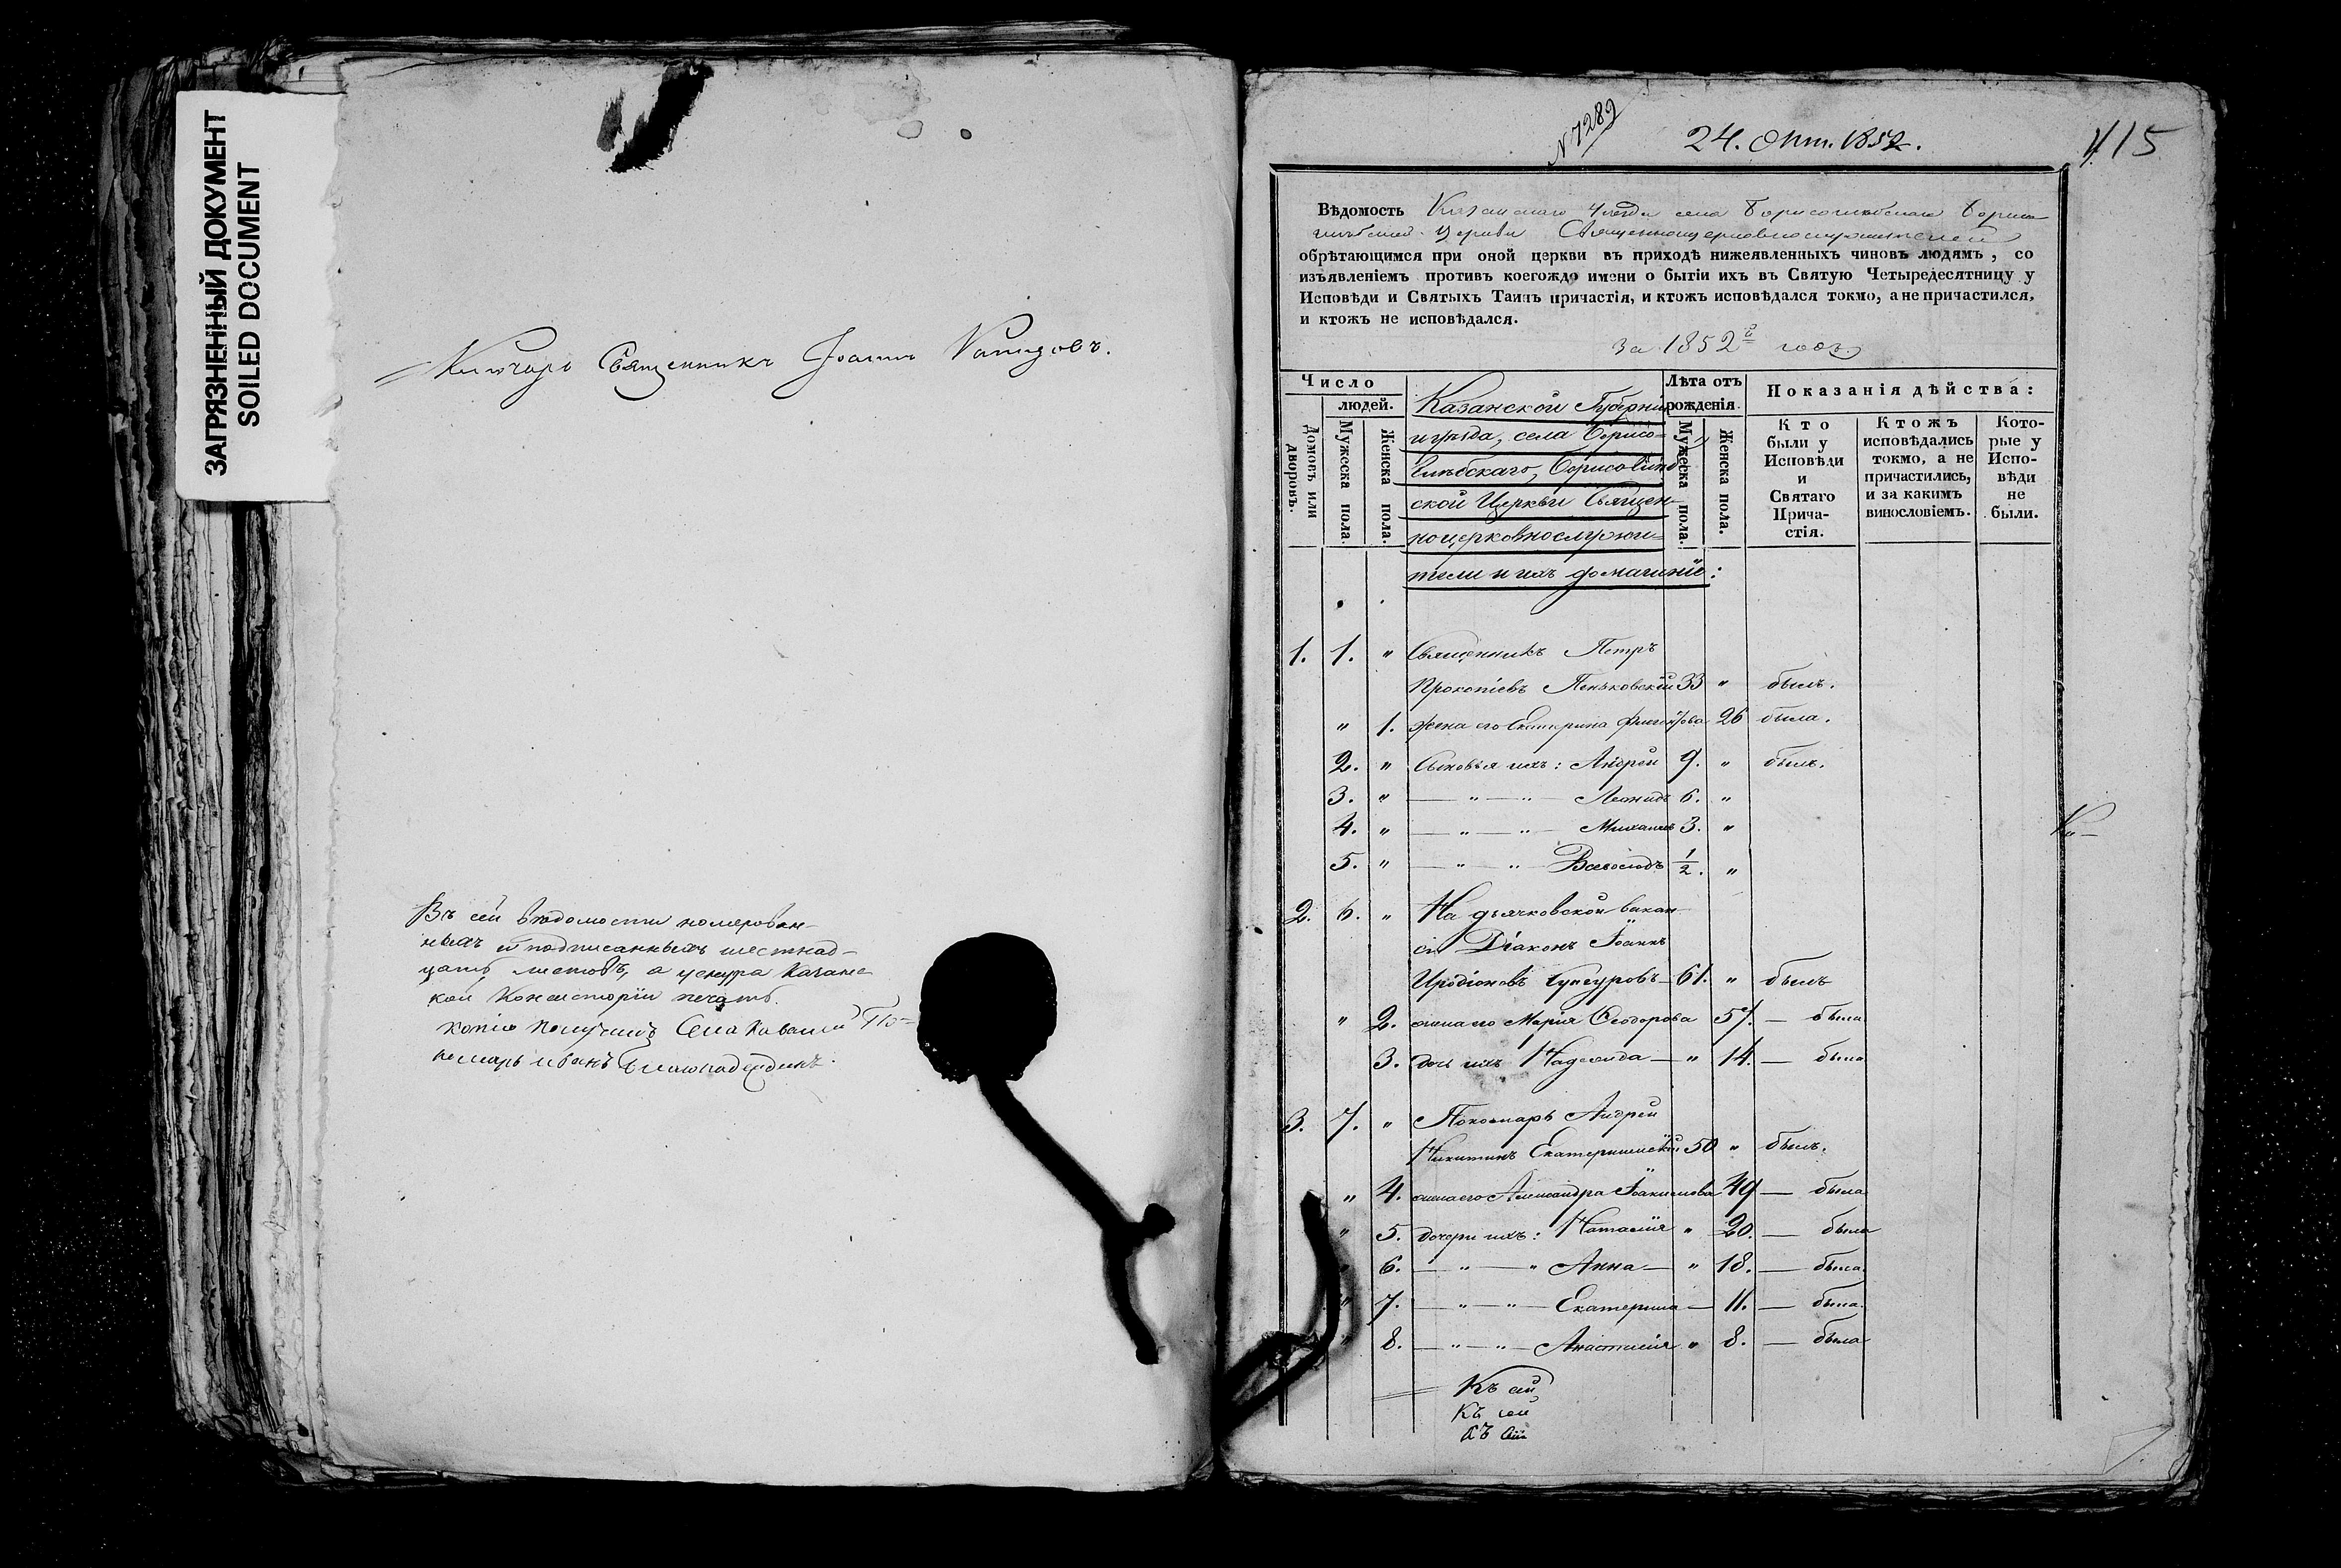 ЗАГРЯЗНЕННЫЙ ДОКУМЕНТ
SOILED DOCUMENT
Ключарь Священникъ Іоаннъ
Въ сей вѣдомости номерован-
ныхъ и подписанныхъ шестнад-
цать листовъ, а у шнура Казанс
кой Консисторіи печать.
копію получилъ Села По-
номарь Иванъ
N 7289
24. Окт. 1852.
415
Вѣдомость Казанскаго Уѣзда села Борисоглѣбскаго Борисо
глѣбской Церкви Священноцерковнослужителей
обрѣтающимся при оной церкви въ приходѣ нижеявленныхъ чиновъ людямъ, со
изъявленіемъ противъ коегождо имени о бытіи ихъ въ Святую Четыредесятницу у
Исповѣди и Святыхъ Таинъ причастія, и ктожъ исповѣдался токмо, а не причастился,
и ктожъ не исповѣдался.
За 1852й годъ.
Число
людей.
Домовъ или дворовъ.
Мужеска пола.
Женска пола.
Казанской Губерніи
и уѣзда, села Борисо-
глѣбскаго, Борисоглѣб
ской Церкви Священ-
ноцерковнослужи-
тели и ихъ домашніе:
Лѣта отъ
рожденія.
Мужеска пола.
Женска пола.
Показанія дѣйства:
Кто
были у
Исповѣди
и
Святаго
Прича-
стія.
Ктожъ
исповѣдались
токмо, а не
причастились,
и за какимъ
винословіемъ.
Кото-
рые у
Испо-
вѣди
не
были.
1. 1. " Священникъ Петръ
Прокопіевъ Пеньковскій 33 " былъ.
" 1. жена его Екатерина 26 была.
2. " Сыновья ихъ: Андрей 9. " былъ.
3. " — " — " — Леонидъ 6. "
4. " — " — " — Михаилъ 3. "
5. " — " — " — Всеволодъ 1/2. "
2. 6. " На дьячковской вакан
сіи Діаконъ Іоаннъ
Иродіоновъ 61. " былъ
" 2. жена его Марія Ѳеодорова 57. — была
3. дочь ихъ Надежда — " 14. — была
3. 7. " Пономарь Андрей
Никитинъ Екатерининскій 50 " былъ.
" 4. жена его Александра Іоакимова 49 — была
" 5. дочери ихъ: Наталія " 20. — была
" 6. — " — " Анна — " 18. — была.
" 7. — " — " — Екатерина — 11. — была.
" 8. — " — " — Анастасія " 8. — была
Къ сей
Къ сей
Къ сей